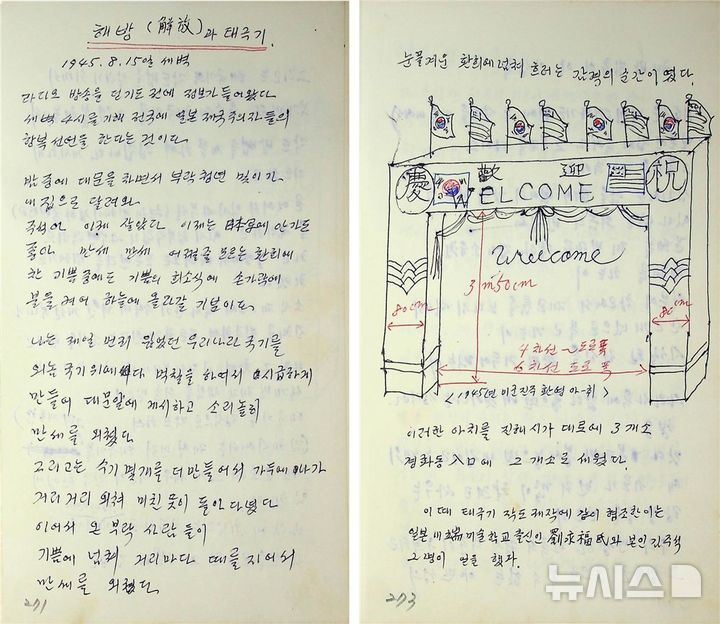 해방 (解放)과 태극기.
1945. 8. 15일 새벽
라디오 방송을 듣기도 전에 정보가 들어왔다.
새벽 4시를 기해 전국에 일본 제국주의자들의
항복 선언을 한다는 것이다.
밤중에 대문을 차면서 부락 청년 몇이가
내 집으로 달려와
이제 살았다 이제는 日本놈에 안가도
좋아 만세 만세 어쩔줄 모르는 환희에
찬 기쁨중에도 기쁨의 희소식에 손가락에
불을 켜어 하늘에 올라갈 기념이다.
나는 제일 먼저 잃었던 우리나라 국기를
외놈 국기위에다 먹칠을 하여서 시급하게
만들어 대문앞에 게시하고 소리높혀
만세를 외쳤다
그리고는 수기 몇개를 더 만들어서 가두에 나가
거리거리 외쳐 미친 듯이 돌아 다녔다
이어서 온 부락 사람들이
기쁨에 넘쳐 거리마다 떼를 지어서
만세를 외쳤다.
271
눈물겨운 환희에 넘쳐 흐르는 감격의 순간이 였다.
慶 歡 迎 祝
WELCOME
Welcome
3m50cm
80cm
80cm
4차선 도로폭
6차선 도로폭
<1945년 미군진주 환영 아-취>
이러한 아치를 진해 시가 대로에 3개소
경화동 入口에 2개소로 세웠다.
이때 태극기 작도 제작에 같이 협조한이는
일본 미술학교 출신인 劉永福氏와 본인 김수석
2명이 일을 했다.
273
뉴시스